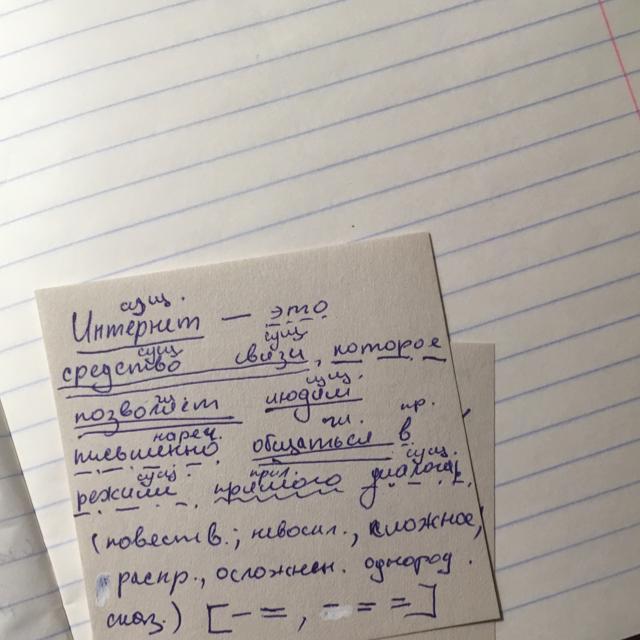 сущ.
Интернет — это
сущ. сущ.
средство связи, которое
гл. сущ.
позволяет людям
нареч. гл. пр.
письменно общаться в
сущ. прил. сущ.
режиме прямого диалога.
(повеств.; невоскл., сложное,
распр., осложнен. однород.
сказ.) [- =, - = =]